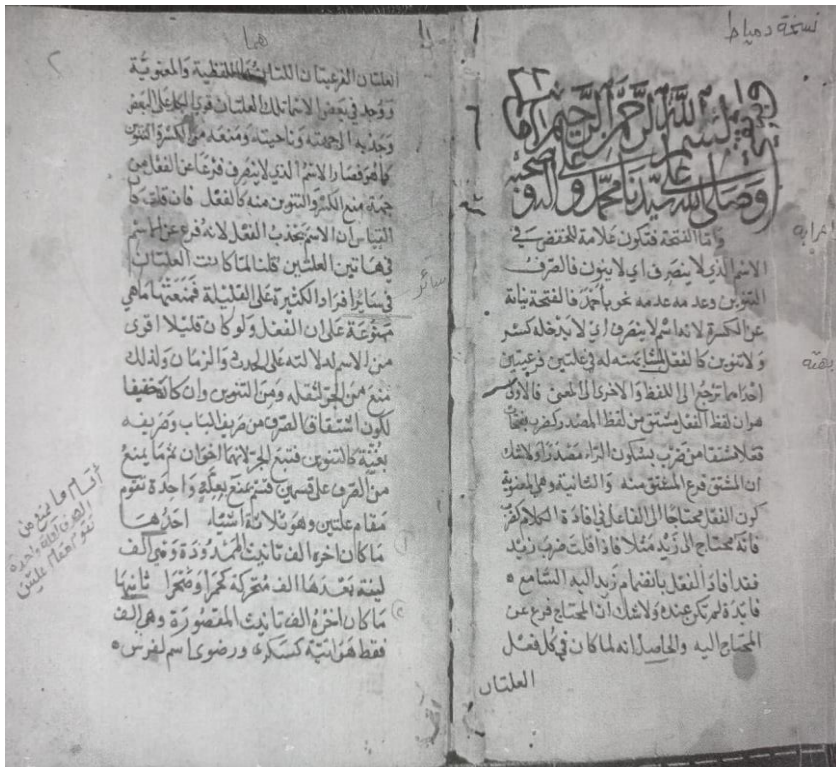 نسخة دمياط
بسم الله الرحمن الرحيم
وصلى الله على سيدنا محمد وآله وصحبه
واما الفتحة فتكون علامة للخفض في
الاسم الذي لا ينصرف اي لا ينون فالصرف
التنوين وعدمه عدمه نحو باحمد فالفتحة نيابة
عن الكسرة لانه اسم لا ينصرف اي لا يدخله كسر
ولا تنوين كالفعل لمشابهته له في علتين فرعيتين
احداهما ترجع الى اللفظ والاخرى الى المعنى فالاولى
هو ان لفظ الفعل مشتق من لفظ المصدر كضرب
فعلا مشتقا من ضرب بسكون الراء مصدرا ولا شك
ان المشتق فرع المشتق منه والثانية وهي المعنوية
كون الفعل محتاجا الى الفاعل في افادة الكلام كضرب
فانه محتاج الى زيد مثلا فاذا قلت ضرب زيد
فقد افاد الفعل بانضمام زيد اليه السامع
فايدة لم تكن عنده ولا شك ان المحتاج فرع عن
المحتاج اليه والحاصل انه لما كان في كل فعل
العلتان
٢
هما
العلتان الفرعيتان اللتان اللفظية والمعنوية
ووجد في بعض الاسما تلك العلتان قوي الحمل على البعض
وجذبه الى جهته وناحيته ومنعه من الكسرة والتنوين
كما هو فصار الاسم الذي لا ينصرف فرعا عن الفعل من
جهة منع الكسر والتنوين منه كالفعل فان قلت
القياس ان الاسم يجذب الفعل لانه فرع عن الاسم
في هاتين العلتين قلنا لما كانت العلتان
في ساير افراد الكثيرة على القليلة فمنعتها ما هي
ممنوعة على ان الفعل ولو كان قليلا اقوى
من الاسم لدلالته على الحدث والزمان ولذلك
منع من الجر لثقله ومن التنوين وان كان تخفيفا
لكون اشتقاق الصرف من صريف الباب وصريفه
بغنة كالتنوين فتبع الجر لانهما اخوان ثم ما يمنع
من الصرف على قسمين قسم يمنع بعلة واحدة تقوم
مقام علتين وهو ثلاثة اشياء احدها
ما كان اخره الف تانيث الممدودة وهي الف
لينة بعدها الف متحركة كحمرا وصحرا ثانيها
ما كان اخره الف تانيث المقصورة وهي الف
فقط هوائية كسكرى ورضوى اسم لفرس
سائر
أقسام ما يمنع من
الصرف لعلة واحدة
تقوم مقام علتين